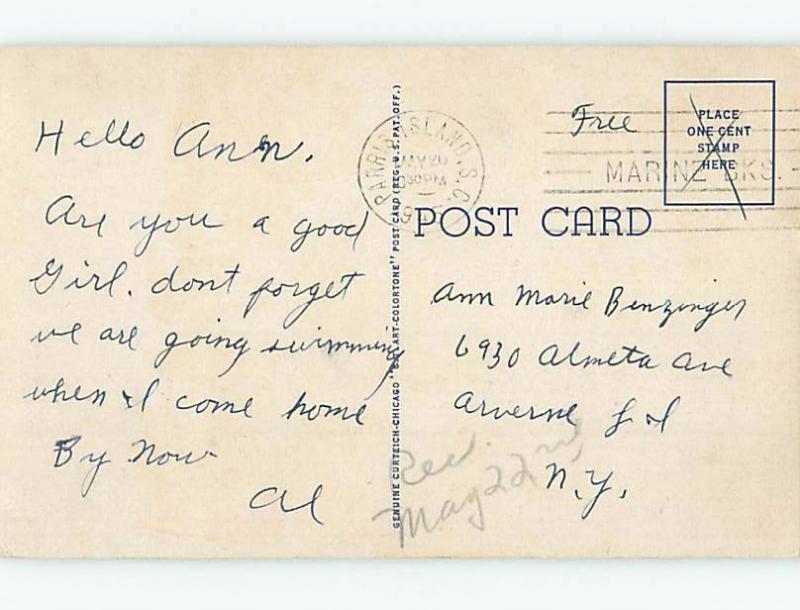 Hello Ann.
Are you a good
Girl. dont forget
we are going swimming
when I come home
By Now
Al
GENUINE CURTEICH-CHICAGO "C.T. ART-COLORTONE" POST CARD (REG. U.S. PAT. OFF.)
PARRIS ISLAND, S.C.
MAY 20
30 PM
Free
PLACE
ONE CENT
STAMP
HERE
MARINE BKS.
POST CARD
Ann Marie Benzinger
6930 Almeta Ave
Arverne L I
N.Y.
Rec.
May 22nd